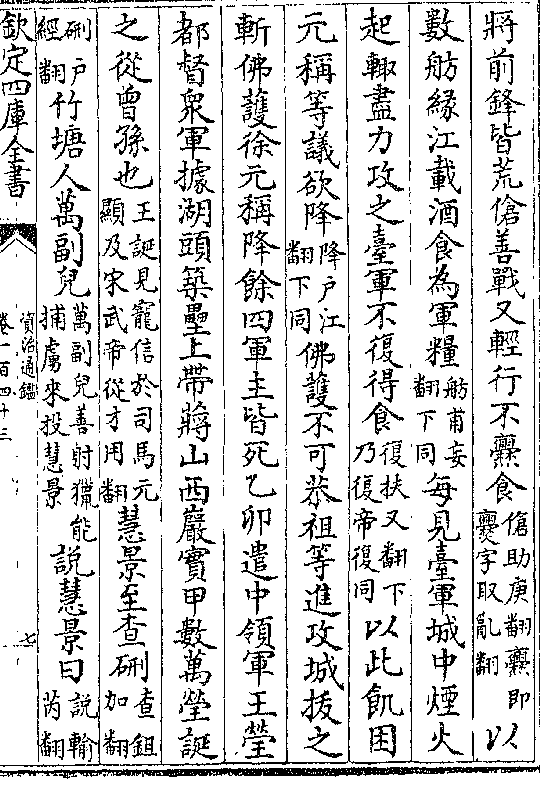 將前鋒皆荒傖善戰又輕行不爨食傖助庚翻爨即爨字取亂翻以
數舫緣江載酒食為軍糧舫甫妄翻下同每見臺軍城中煙火
起輙盡力攻之臺軍不復得食復扶又翻下乃復帝復同以此飢困
元稱等議欲降降戶江翻下同佛護不可恭祖等進攻城拔之
斬佛護徐元稱降餘四軍主皆死乙卯遣中領軍王瑩
都督衆軍據湖頭築壘上帶蔣山西巖實甲數萬瑩誕
之從曾孫也王誕見寵信於司馬元顯及宋武帝從才用翻慧景至查硎查鉏加翻
硎戶經翻竹塘人萬副兒萬副兒善射獵能捕虜來投慧景說慧景曰說輸芮翻
欽定四庫全書
資治通鑑
卷一百四十三
七